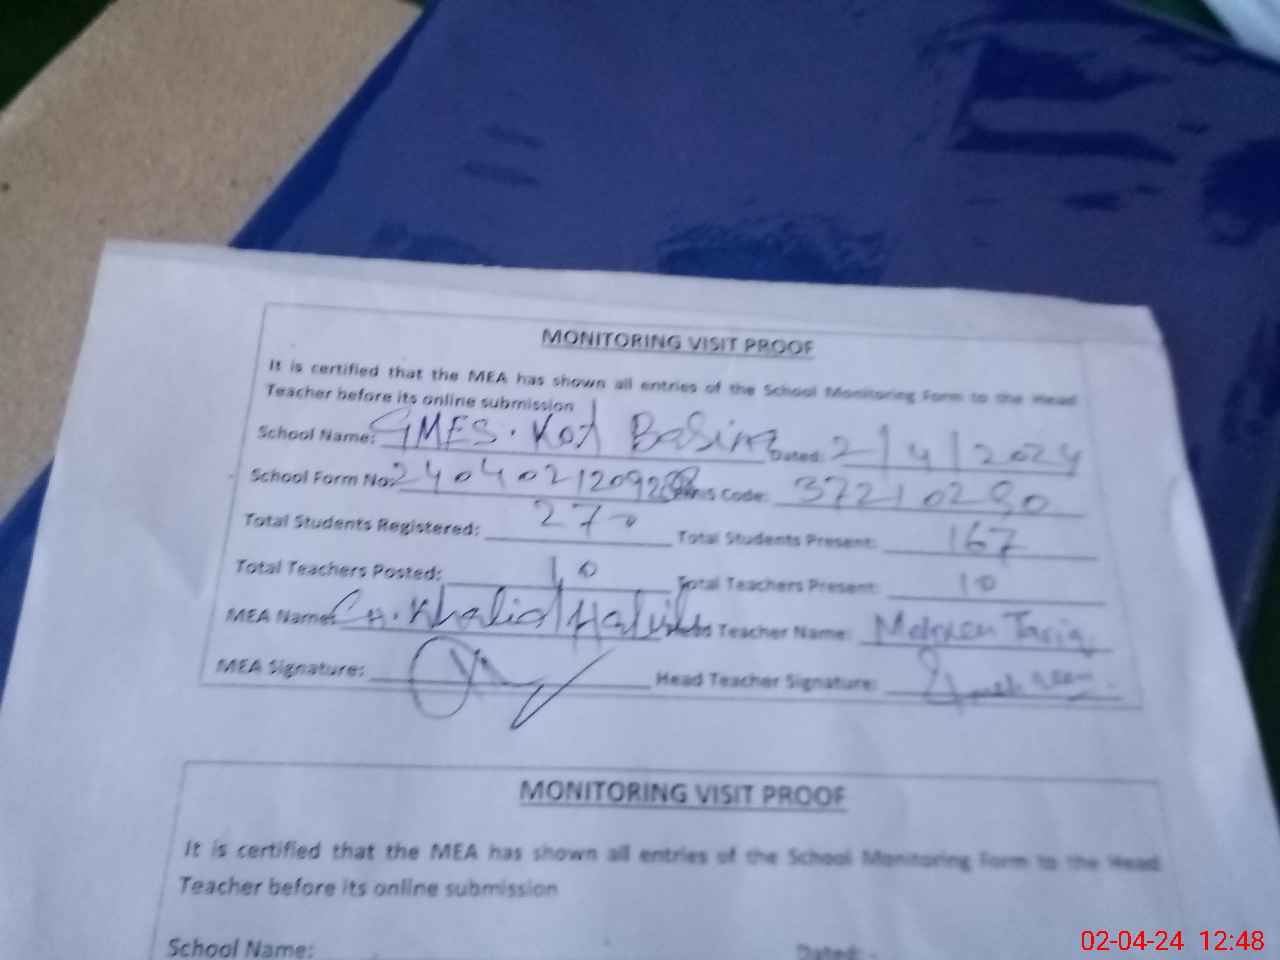 MONITORING VISIT PROOF
It is certified that the MEA has shown all entries of the School Monitoring Form to the Head
Teacher before its online submission
School Name: GMES. Kot Basira Dated: 2/4/2024
School Form No: Code: 37210290
Total Students Registered: 270 Total Students Present: 167
Total Teachers Posted: 10 Total Teachers Present: 10
MEA Name: Ch. Khalid Head Teacher Name: Tariq
MEA Signature: Head Teacher Signature:
MONITORING VISIT PROOF
It is certified that the MEA has shown all entries of the School Monitoring Form to the Head
Teacher before its online submission
School Name: Dated:
02-04-24 12:48